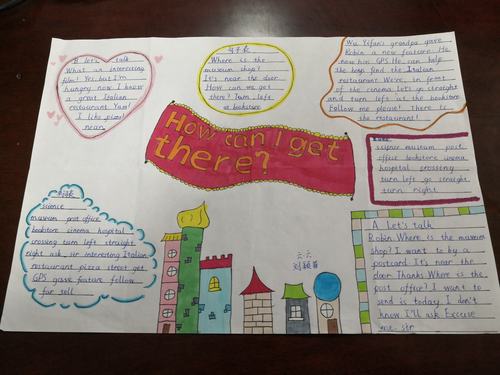 B let's talk
What an interesting
film! Yes, but I'm
hungry now. I know
a great Italian
restaurant Yum!
I like pizza!
Where is the
museum shop?
It's near the door.
How can we get
there? Turn left
at bookstore
Wu Yifan's grandpa gave
Robin a new feature. He
now has GPS He can help
the boys find the Italian
restaurant We're in front
of the cinema Let's go straight
and turn left at the bookstore
Follow me please! There is
the restaurant!
How can I get
there?
science museum post
office bookstore cinema
hospital crossing
turn left go straight
turn right
science
museum post office
bookstore cinema hospital
crossing turn left straight
right ask sir interesting Italian
restaurant pizza street get
GPS gave feature follow
far tell
六.六
A Let's talk
Robin Where is the museum
shop? I want to by a
postcard It's near the
door Thanks Where is the
post office? I want to
send is today I don't
know I'll ask Excuse